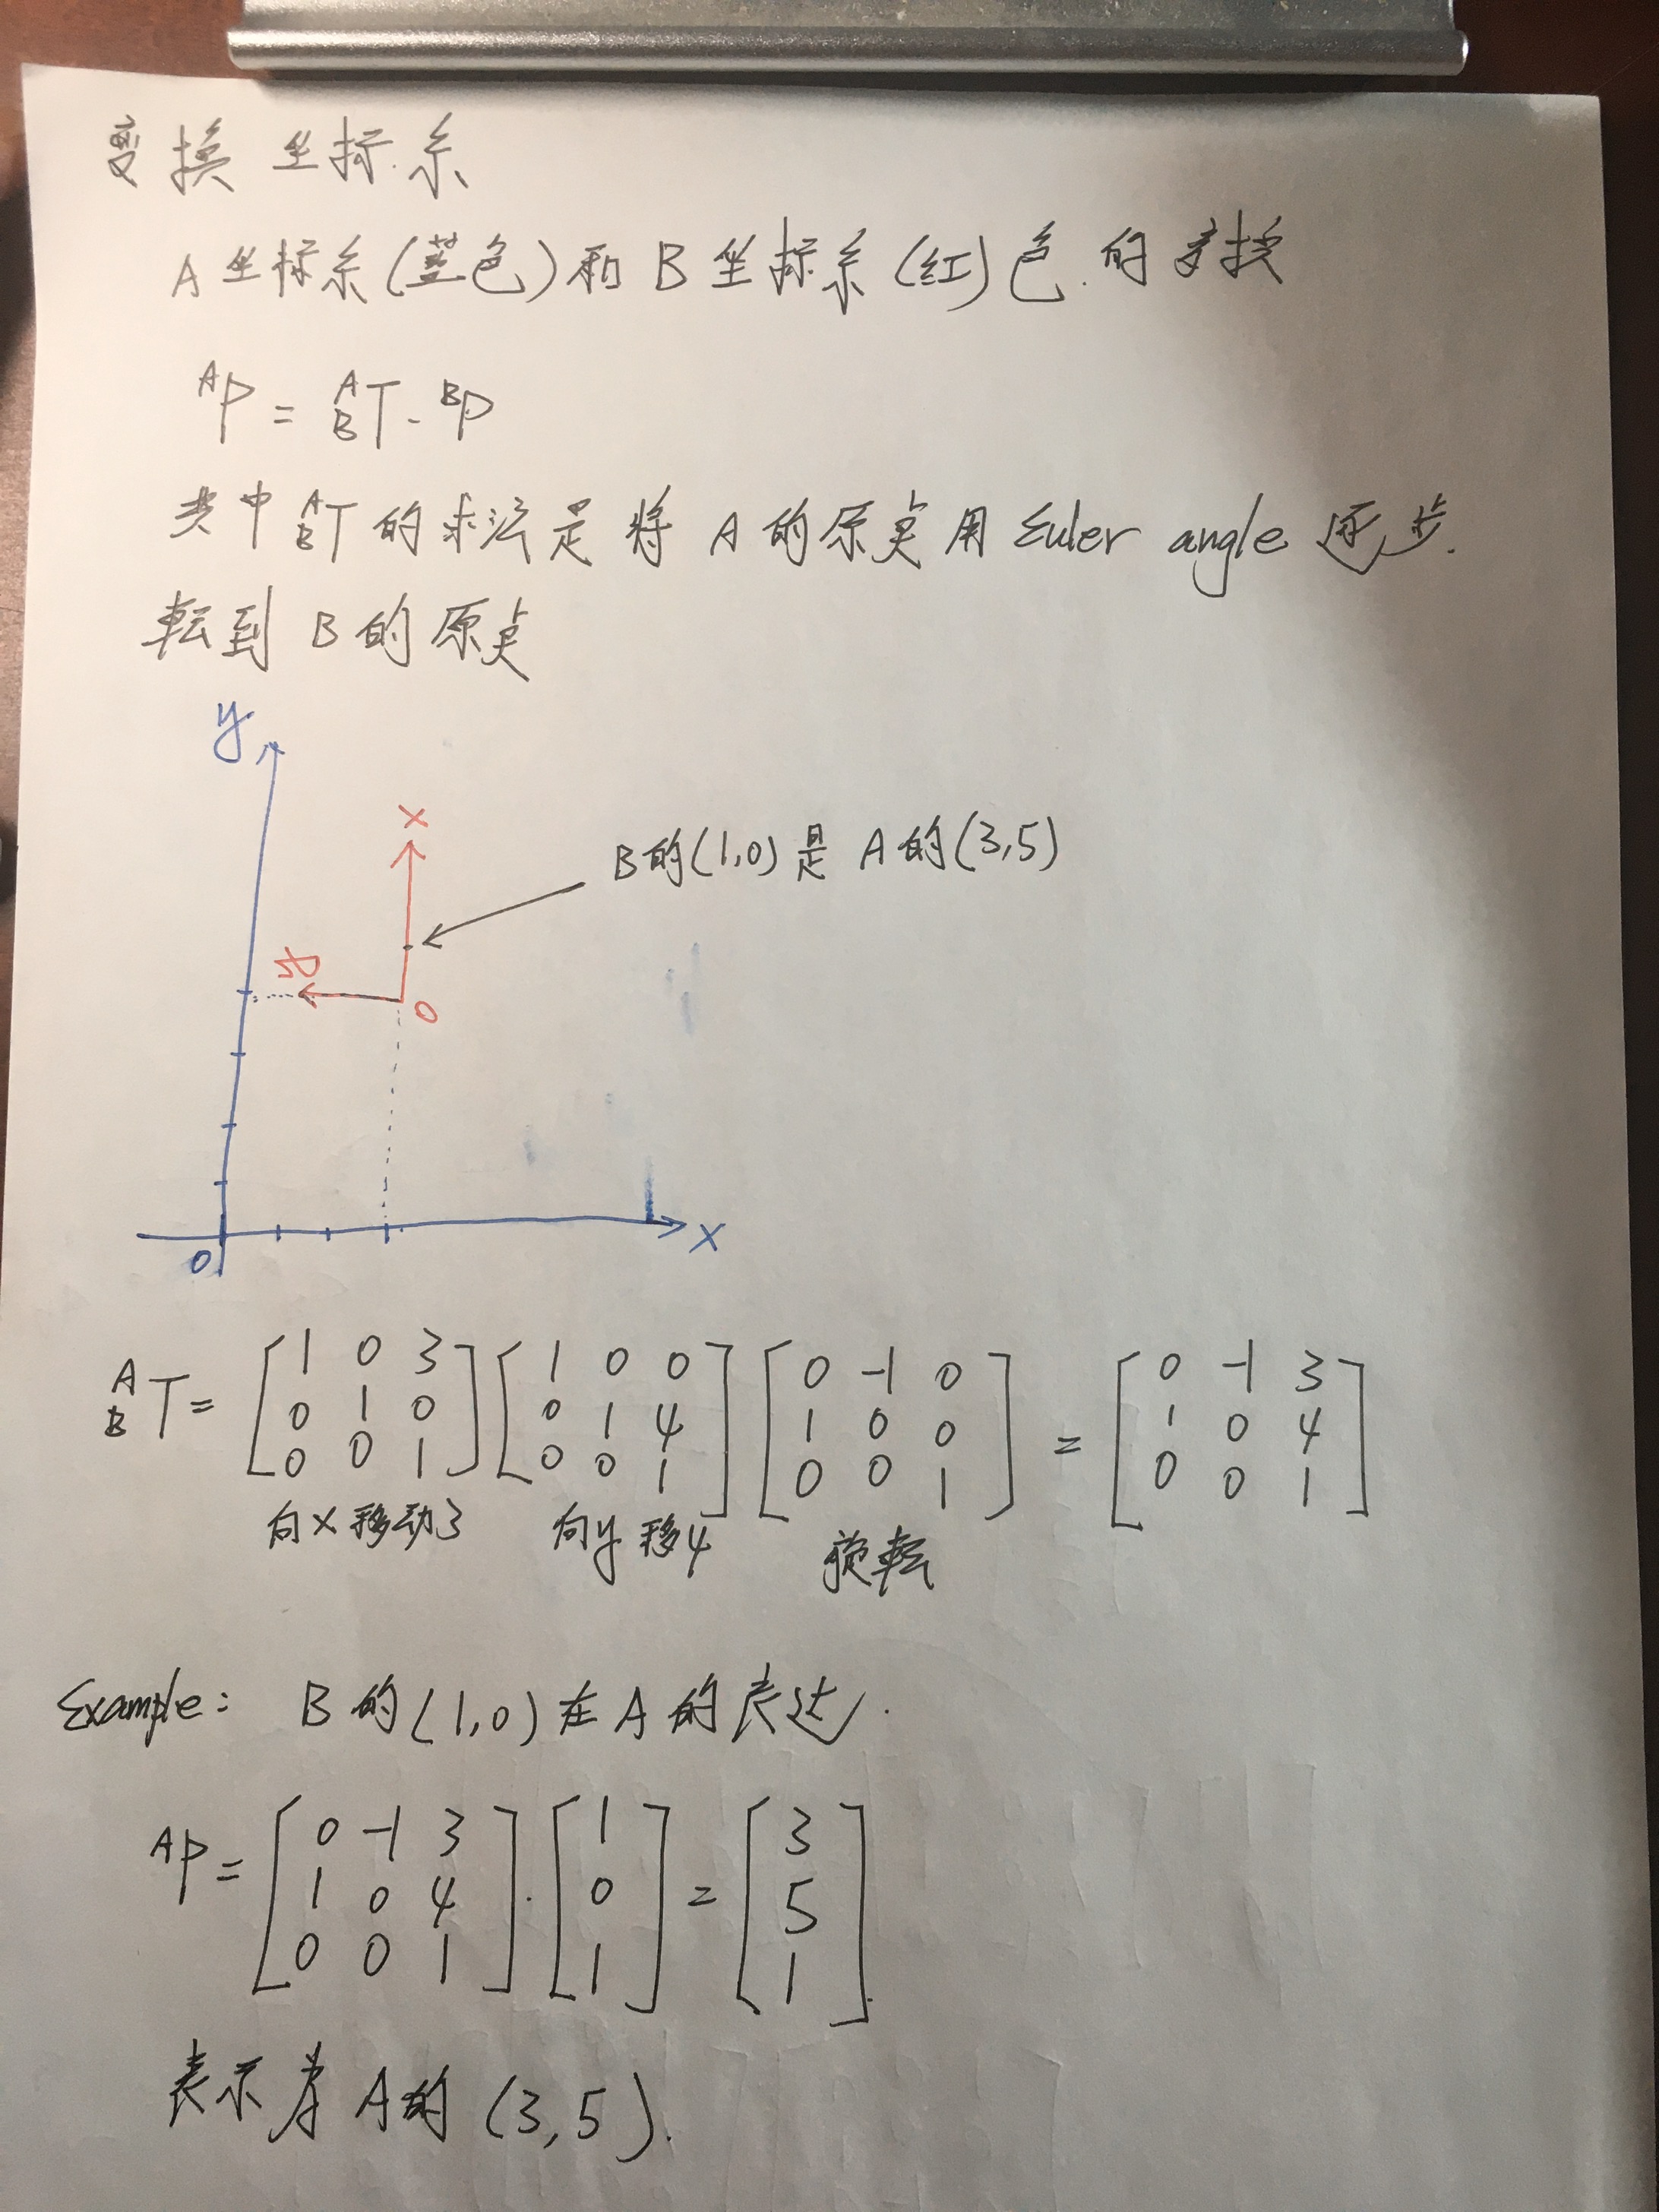 变换 坐标系
A 坐标系(蓝色)和 B 坐标系(红)色.的变换
ᴬP = ᴬ_BT · ᴮP
其中 ᴬ_BT 的求法是 将 A 的原点用 Euler angle 逐步.
転到 B 的 原点
y
x
B的(1,0)是 A 的(3,5)
y
0
0
x
ᴬ_BT = [1 0 3; 0 1 0; 0 0 1] [1 0 0; 0 1 4; 0 0 1] [0 -1 0; 1 0 0; 0 0 1] = [0 -1 3; 1 0 4; 0 0 1]
向x移动3 向y移4 旋転
Example: B 的(1,0)在 A 的表达.
ᴬP = [0 -1 3; 1 0 4; 0 0 1] · [1; 0; 1] = [3; 5; 1]
表示为 A的 (3,5).